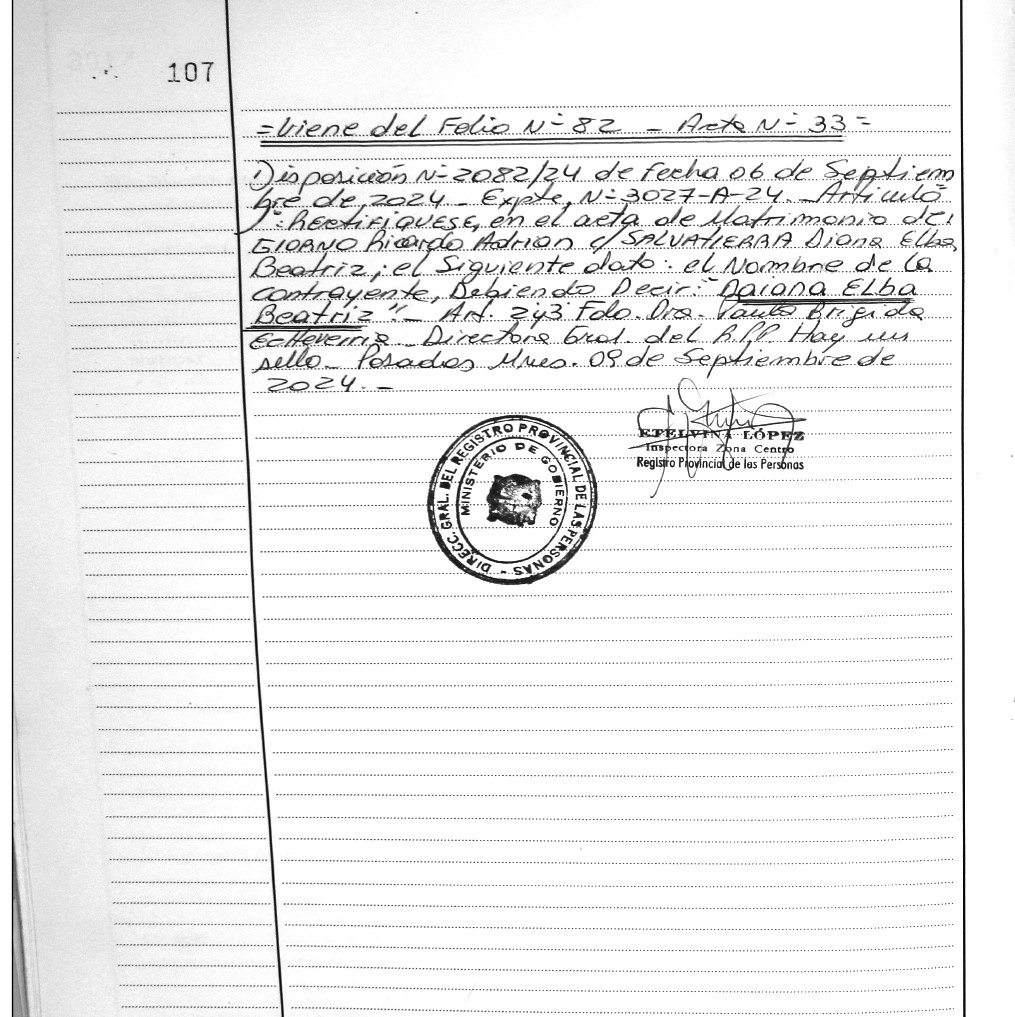 107
=Viene del Folio N° 82 - Acta N° 33=
1) Disposición N° 2082/24 de fecha 06 de Septiem
bre de 2024 - Expte, N° 3027-A-24.- Articulo
1°: RECTIFIQUESE, en el acta de Matrimonio de:
GIORNO Ricardo Adrian c/ SALVATIERRA Diana Elba
Beatriz; el Siguiente dato: el Nombre de la
contrayente, Debiendo Decir: "Daiana ELba
Beatriz".- Art. 243 Fdo. Dra. Paula Brigida
Echeverria - Directora Gral. del R.P.P. Hay un
sello - Posadas Mnes. 09 de Septiembre de
2024.-
ETELVINA LÓPEZ
Inspectora Zona Centro
Registro Provincial de las Personas
DIRECC. GRAL. DEL REGISTRO PROVINCIAL DE LAS PERSONAS -
MINISTERIO DE GOBIERNO